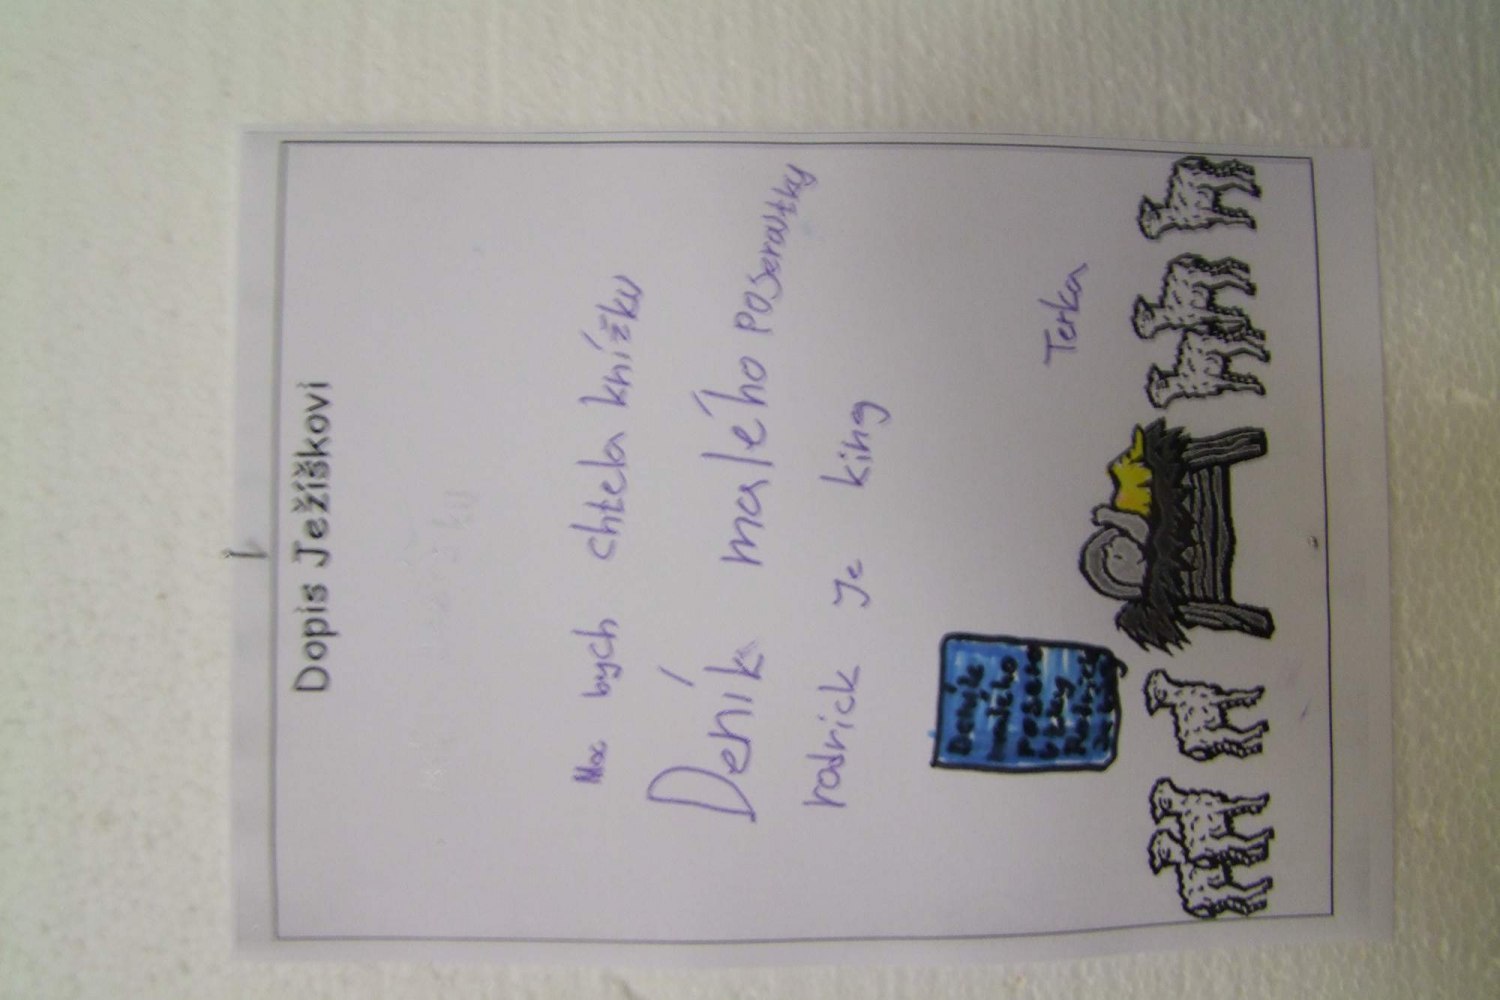 Dopis Ježíškovi
Moc bych chtela knížku
Deník malého poseroutky
rodrick je king
Deník
malého
poserou
tky
Rodrick
je king
Terka